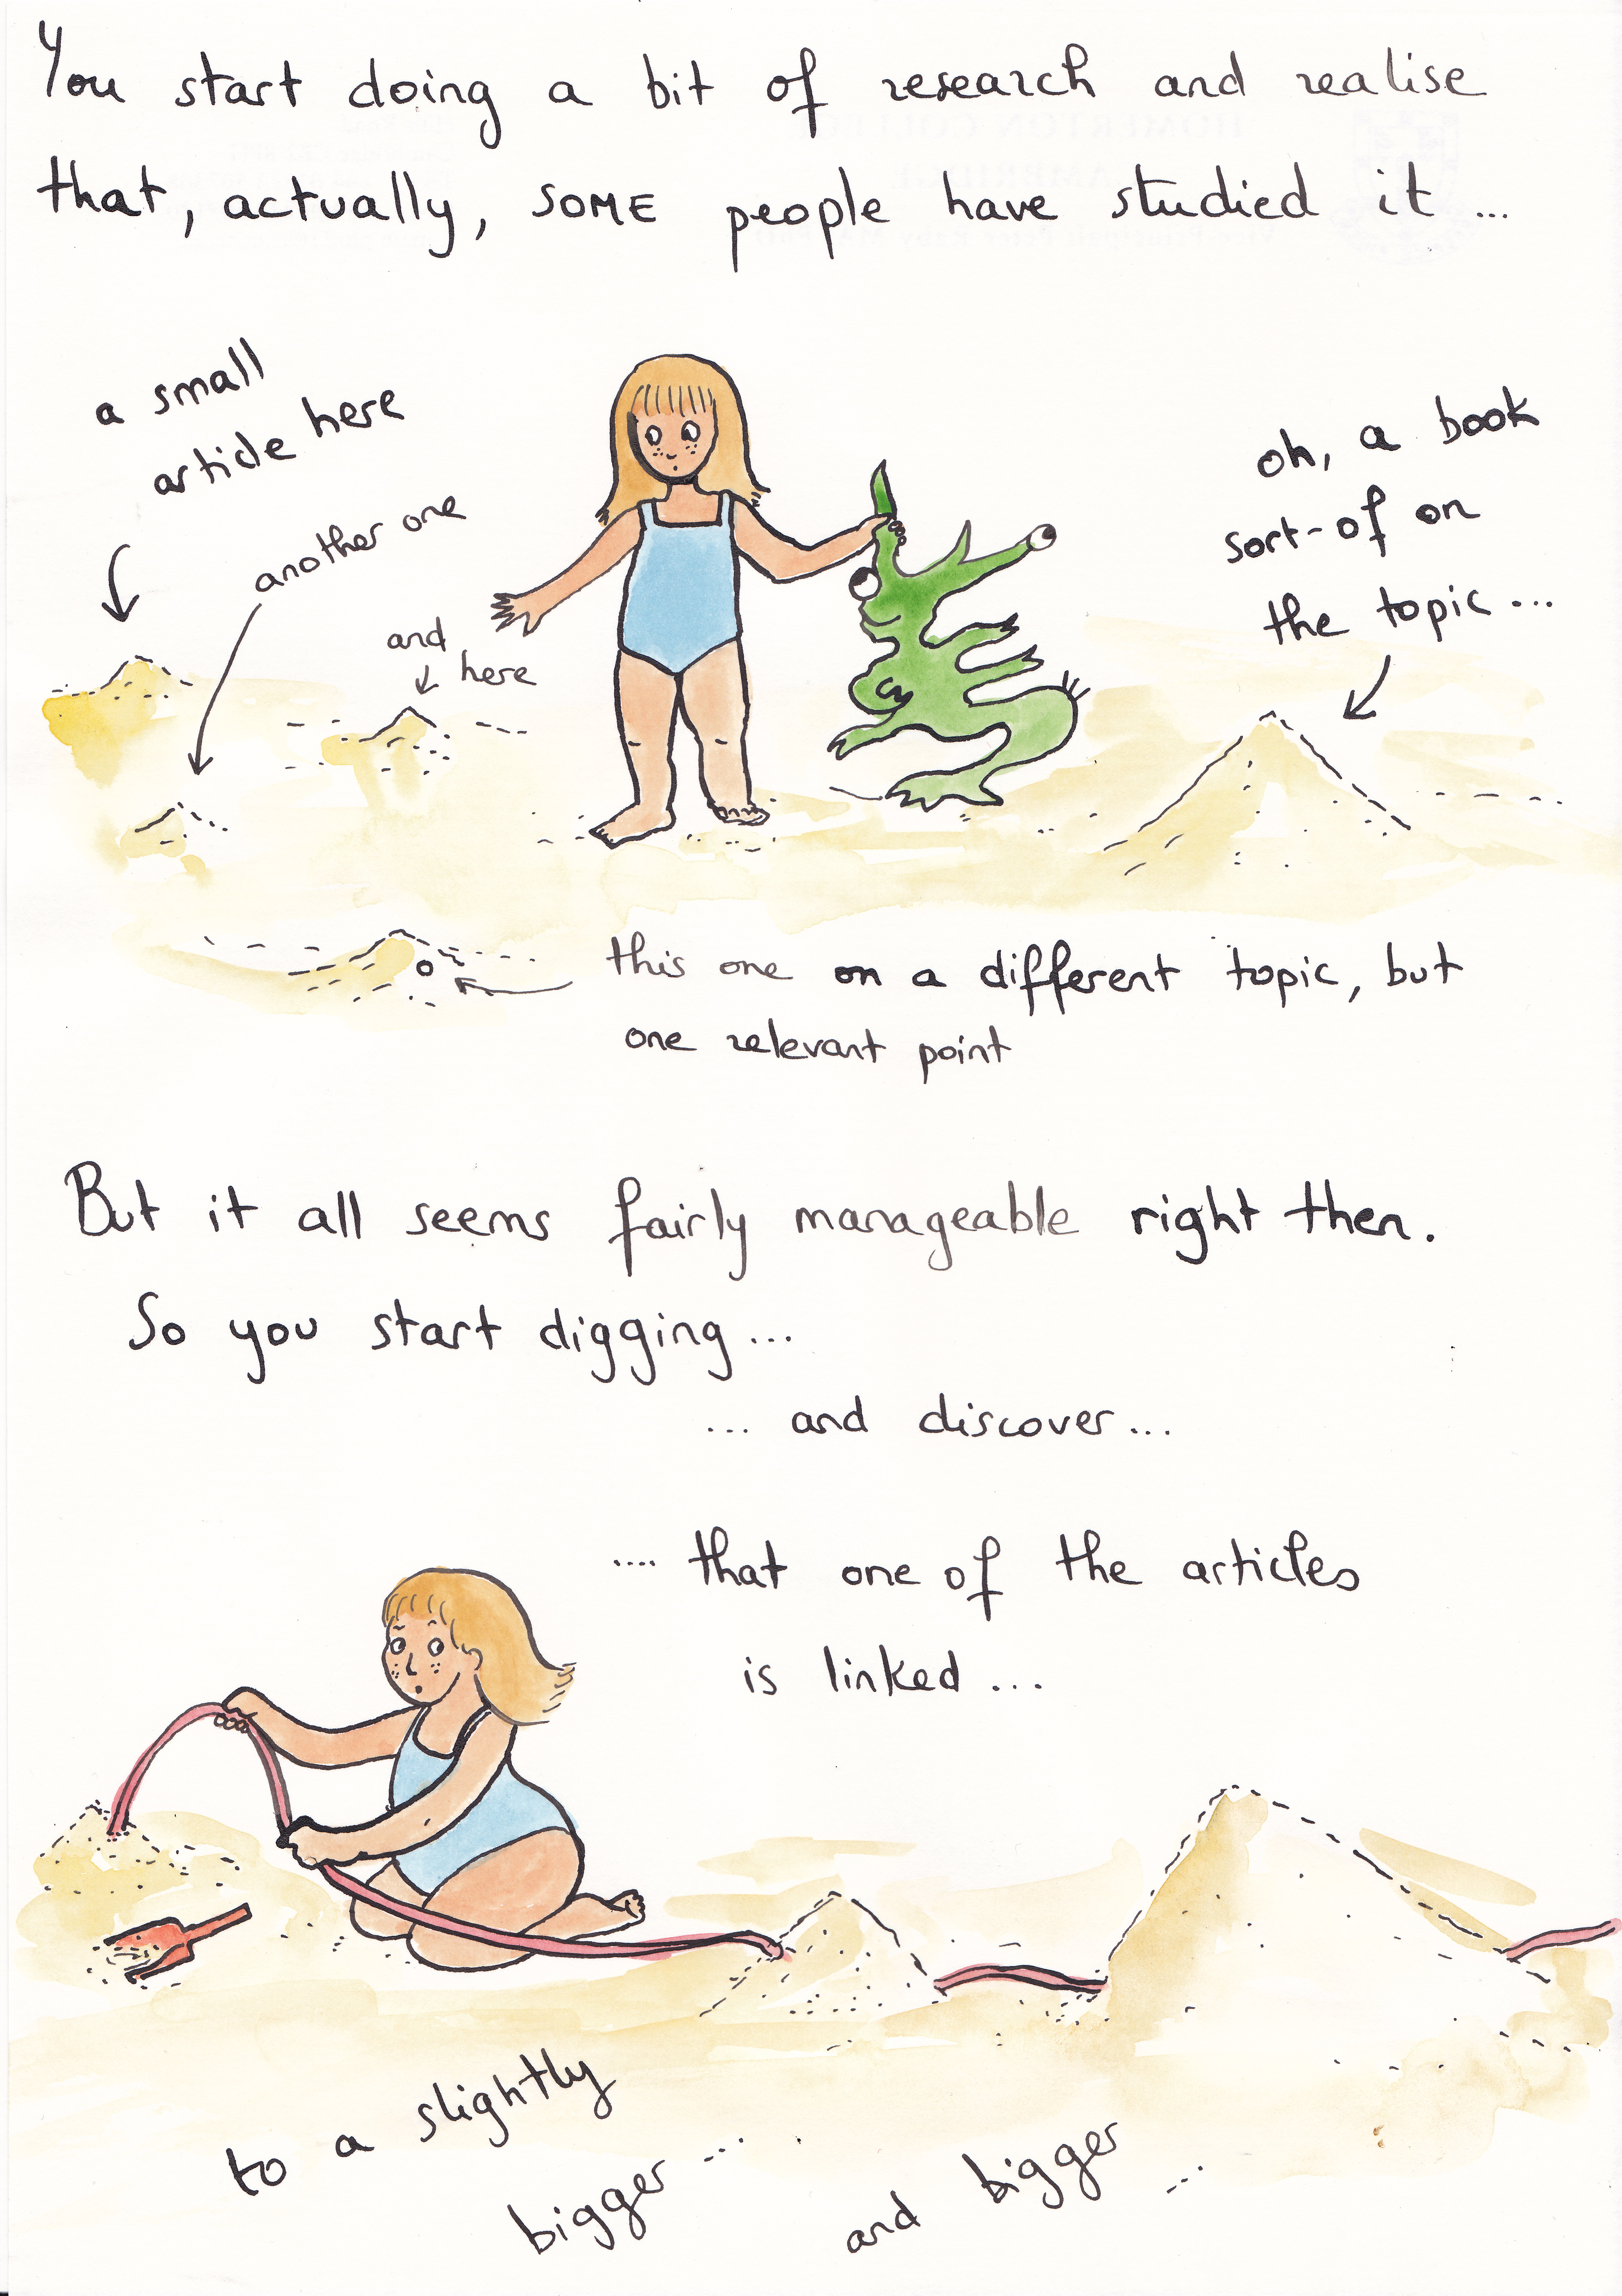 You start doing a bit of research and realise
that, actually, SOME people have studied it...
a small
article here
another one
and
here
oh, a book
sort-of on
the topic...
this one on a different topic, but
one relevant point
But it all seems fairly manageable right then.
So you start digging...
... and discover...
.... that one of the articles
is linked...
to a slightly
bigger...
and bigger
...